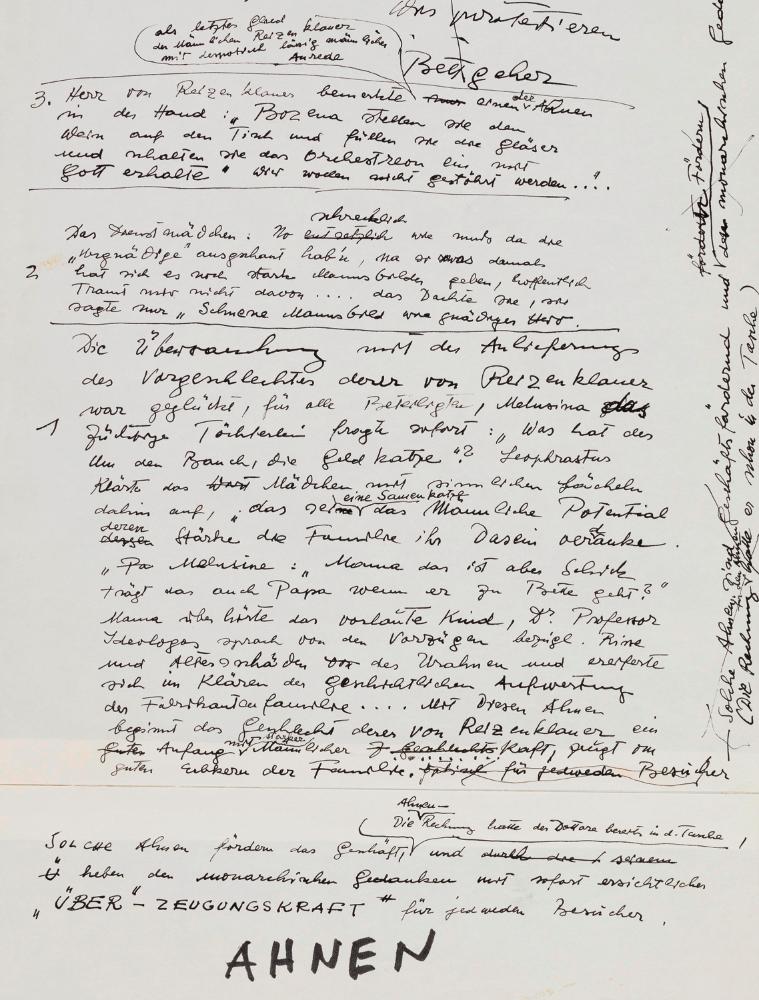 Uns protestieren
als letztes Glied
der Männlichen Reizenklauer
mit despotisch lässig männlicher
Anrede
Bettgeher
3. Herr von Reizenklauer bemerkte einen der Ahnen
in der Hand: „Bozena stellen sie den
Wein auf den Tisch und füllen sie die Gläser
und schalten sie das Orchestreon ein mit
Gott erhalte" wir wollen nicht gestöhrt werden....".
schrecklich
Das Dienstmädchen: No entsetzlich wie muss da die
„Urgnädige" ausgschaut hab'n, na er was damals
2 hat sich es noch starke Mannsbilder geben, hoffentlich
Tramt mir nicht davon.... das Dachte sie, sie
sagte nur „Schöne Mannsbild wie gnädiger Herr.
Die Überraschung mit der Anlieferung
des Vorgeschlechtes derer von Reizenklauer
war geglückt, für alle Beteiligte, Melusina das
1 züchtige Töchterlein fragte sofort: „Was hat der
Um den Bauch, die Geldkatze"? Leophrastus
Klärte das Mädchen mit sinnlichen Lächeln
eine Samenkatze
dahin auf, „das seine das Männliche Potential
deren
dessen Stärke die Familie ihr Dasein verdanke.
„Pa Melusine: „Mama das ist aber Schick
trägt das auch Papa wenn er zu Bette geht?"
Mama überhörte das vorlaute Kind, Dr. Professor
Ideologos sprach von den Vorzügen bezügl. Risse
und Altersschäden vor des Urahnen und ereiferte
sich im Klären der geschichtlichen Aufwertung
der Fabrikantenfamilie.... Mit Diesen Ahnen
beginnt das Geschlecht derer von Reizenklauer ein
mit starker
guten Anfang Männlicher geschlechtskraft, zeugt vom
guten Erbkern der Familie. optisch für jedweden Besucher
Ahnen-
Die Rechnung hatte der Dottore bereits in d. Tasche
Solche Ahnen fördern das Geschäft, und durch die seinem
Ü heben den monarchischen Gedanken mit sofort ersichtlicher
„ÜBER"-ZEUGUNGSKRAFT" für jedweden Besucher.
AHNEN
fördert Fördern
Solche Ahnen sind geschäftsfördernd und den monarchischen
für den Ahnen
(Die Rechnung hatte er schon in der Tasche)